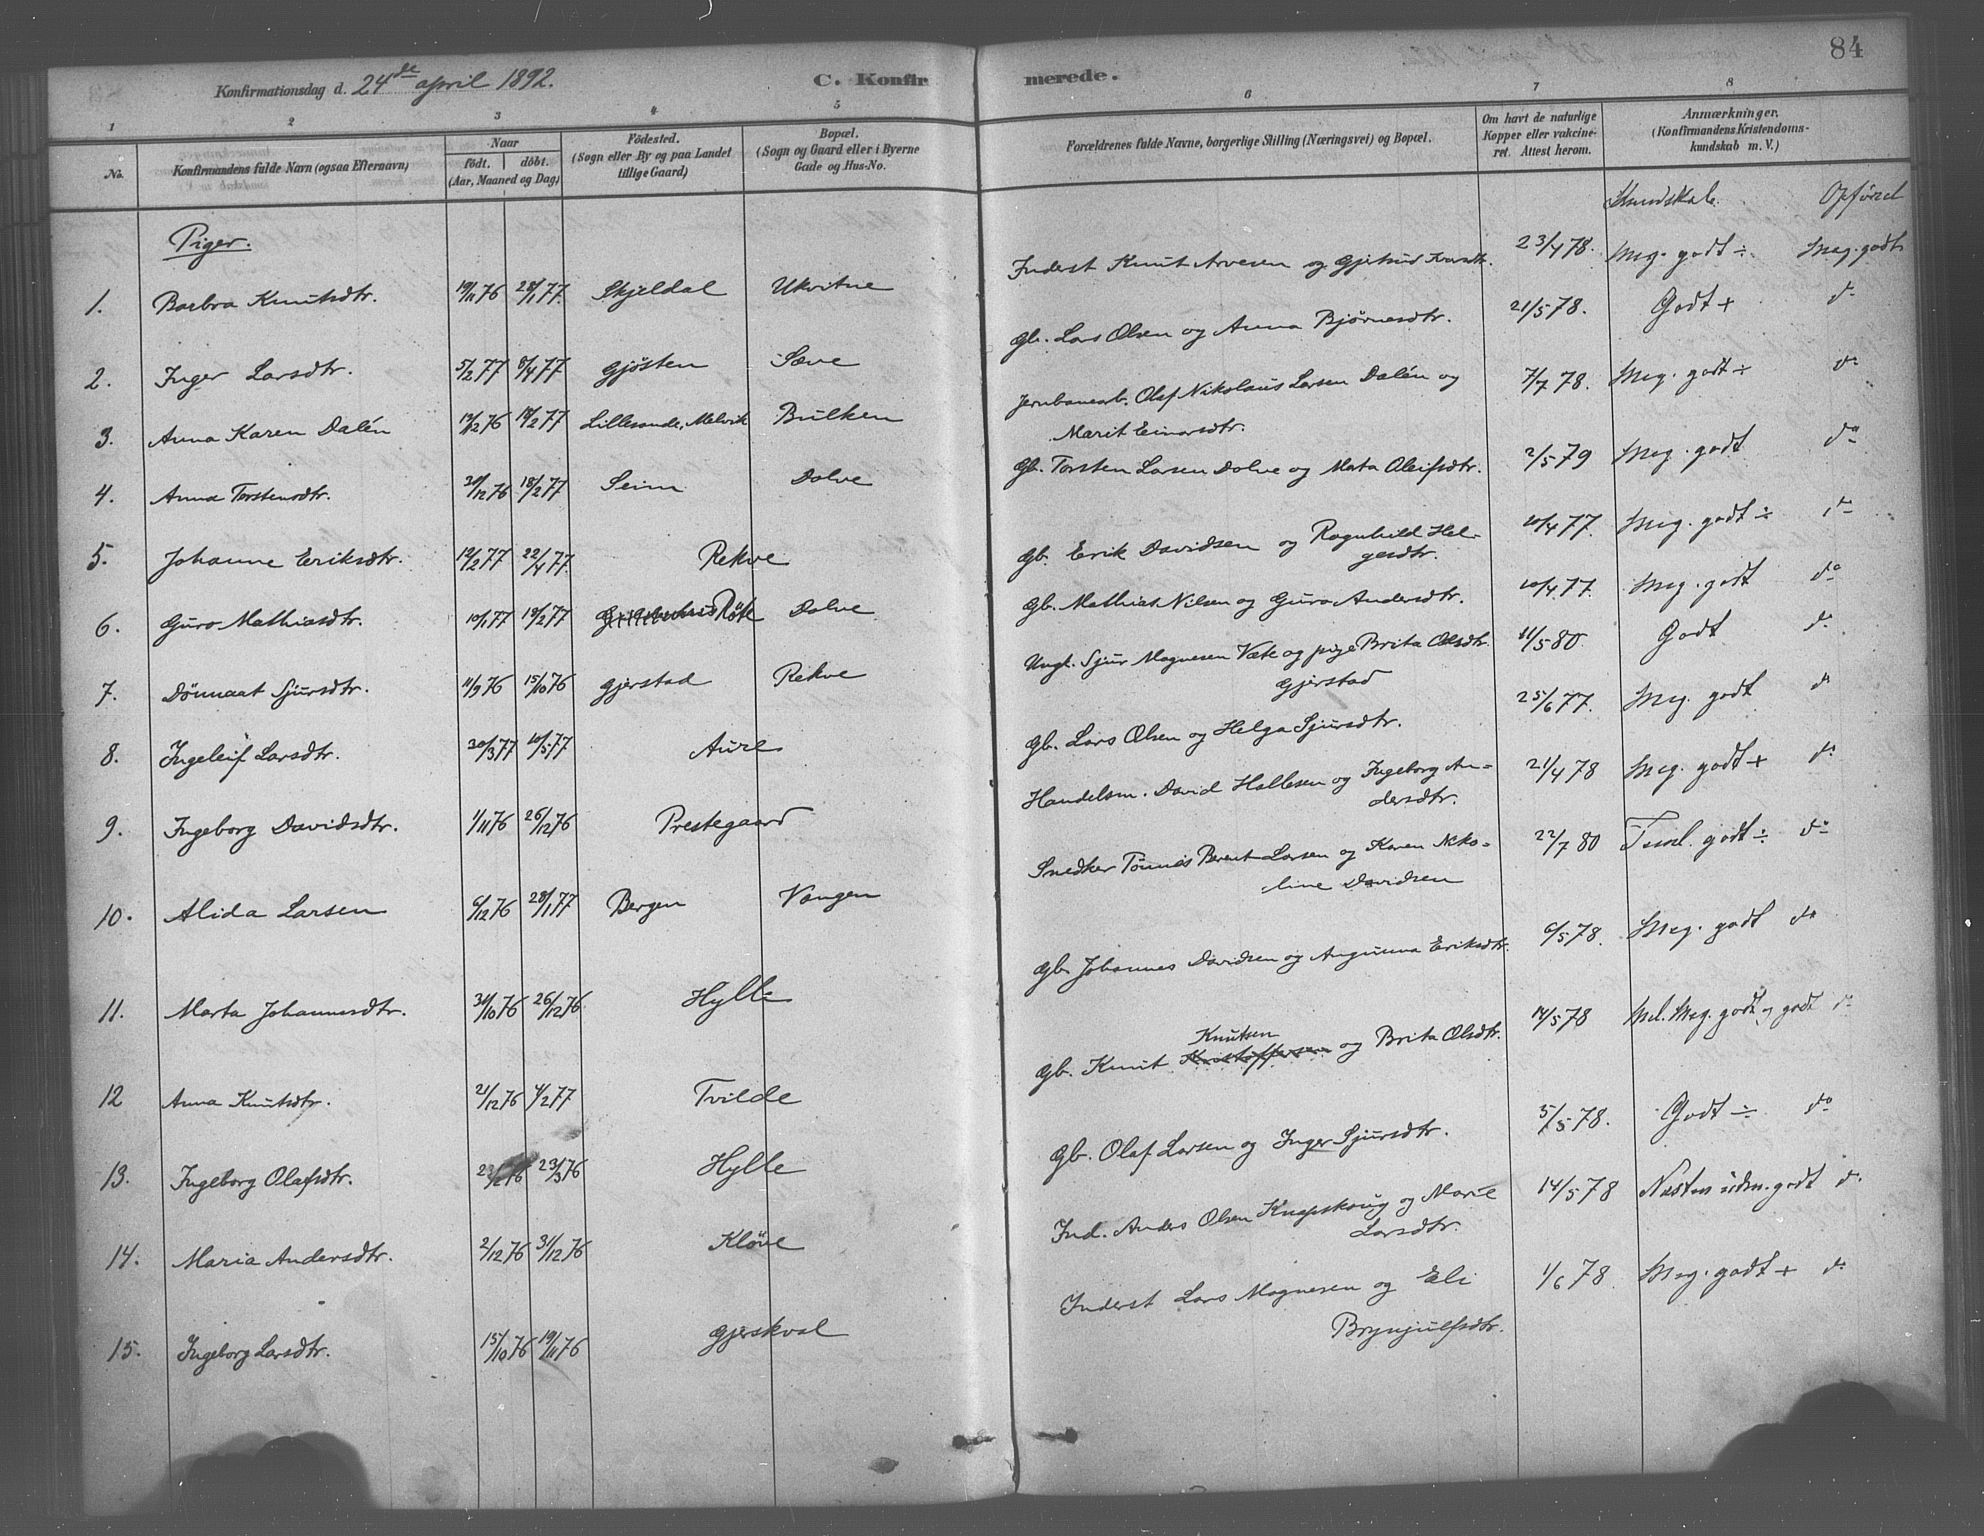 84
Konfirmationsdag d. 24de april 1892. C. Konfirmerede.
1 2 3 4 5 6 7 8
No. Konfirmandens fulde Navn (ogsaa Efternavn) Naar født. døbt. (Aar, Maaned og Dag) Fødested. (Sogn eller By og paa Landet tillige Gaard) Bopæl. (Sogn og Gaard eller i Byerne Gade og Hus-No. Forældrenes fulde Navne, borgerlige Stilling (Næringsvei) og Bopæl. Om havt de naturlige Kopper eller vakcineret. Attest herom. Anmærkninger. (Konfirmandens Kristendomskundskab m. V.)
Kundskab. Opførsel
Piger.
1. Barbra Knutsdtr. 19/11 76 28/1 77. Skjeldal Ukvitne Inderst Knut Arvesen og Gjertrud 23/4 78. Meg. godt ÷ Meg. godt
2. Inger Larsdtr. 5/2 77 8/4 77 Gjøsten Sæve Gb. Lars Olsen og Anna Bjørnesdtr. 21/5 78. Godt + do
3. Anna Karen Dalén 12/12 76 18/2 77 Lillesande, Melvik Bulken Jernbanearb. Olaf Nikolaus Larsen Dalén og
Marit Einarsdtr. 7/7 78. Meg. godt ÷ do
4. Anna Torstensdtr. 20/12 76 18/2 77 Seim Dolve Gb. Torsten Larsen Dolve og Marta Oleifsdtr. 2/5 79 Meg. godt do
5. Johanne Eriksdtr. 12/2 77 22/4 77. Rekve Gb. Erik Davidsen og Ragnhild Hel-
gesdtr. 10/4 77. Meg. godt ÷ do
6. Guro Mathiasdtr. 10/1 77 18/2 77 Røte Dolve Gb. Mathias Nilsen og Guro Andersdtr. 10/4 77. Meg. godt do
7. Dønnaat Sjursdtr. 11/9 76 15/10 76 Gjerstad Rekve Ungk. Sjur Magnesen Væte og pige Brita Olsdtr.
Gjerstad 11/5 80. Godt do
8. Ingeleif Larsdtr. 30/3 77 10/5 77 Aure Gb. Lars Olsen og Helga Sjursdtr. 25/6 77. Meg. godt do
9. Ingeborg Davidsdtr. 1/11 76 26/12 76 Prestegaard Handelsm. David Hallesen og Ingeborg An-
dersdtr. 21/4 78 Meg. godt + do
10. Alida Larsen 6/12 76 28/1 77 Bergen Vangen Snedker Tønnes Berent Larsen og Karen Niko-
line Davidsen 22/7 80 godt ÷ do
11. Marta Johannesdtr. 31/10 76 26/12 76. Hylle Gb. Johannes Davidsen og Angunna Eriksdtr. 6/5 78. Meg. godt do
12 Anna Knutsdtr. 21/12 76 4/2 77 Tvilde Gb. Knut Knutsen Kristoffersen og Brita Olsdtr. 14/5 78 Mel. Meg. godt og godt do
13. Ingeborg Olafsdtr. 23/3 76 Hylle Gb. Olaf Larsen og Inger Sjursdtr. 5/5 78. Godt ÷ do
14. Maria Andersdtr. 2/12 76 31/12 76 Kløve Ind. Anders Olsen Knapskaug og Marie
Larsdtr. 14/5 78 Næsten udm. godt do
15. Ingeborg Larsdtr. 15/10 76 19/11 76 Gjerskval Inderst Lars Magnesen og Eli
Brynjulfsdtr. 1/6 78. Meg. godt + do